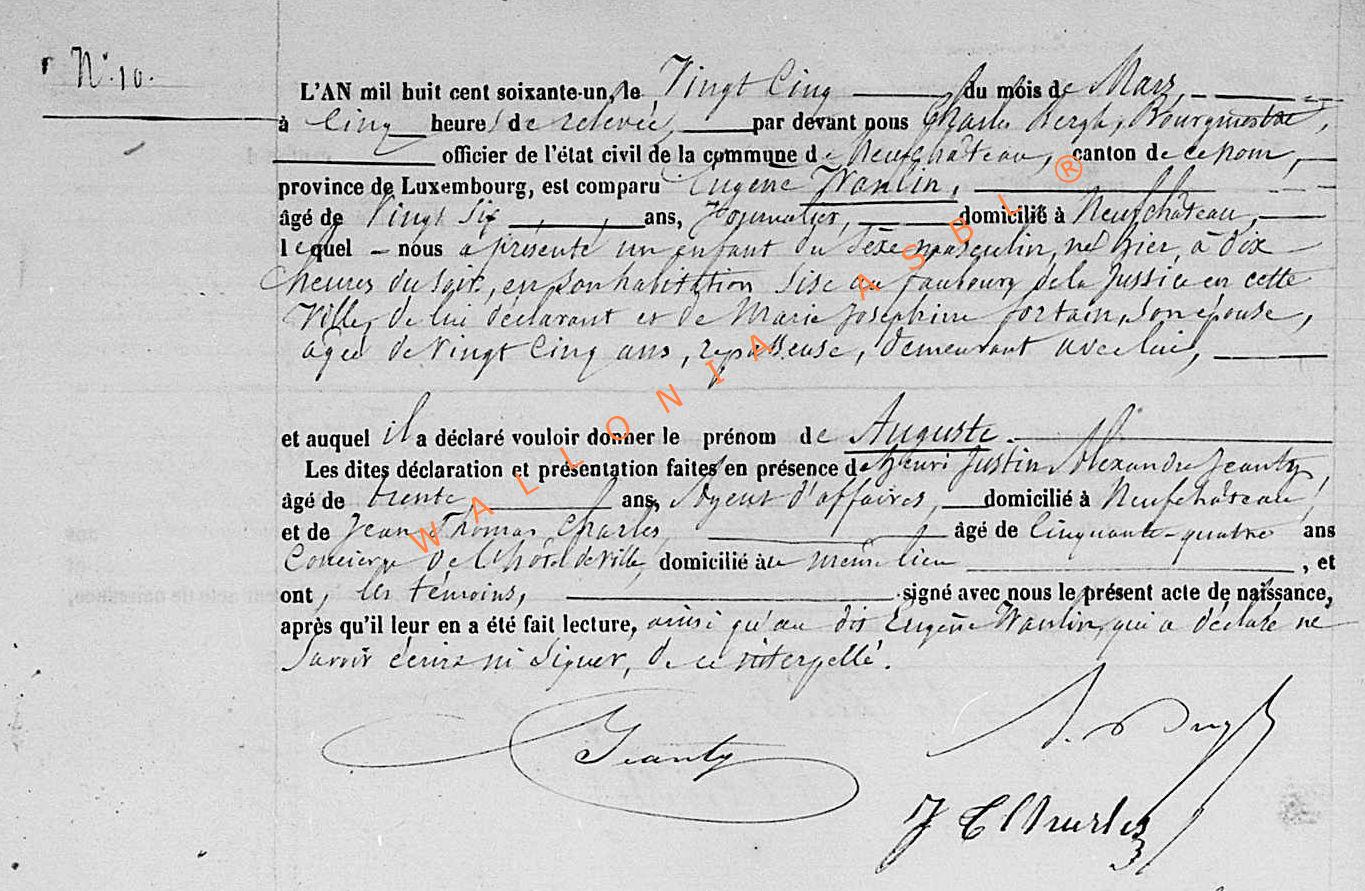 N° 10.
L'AN mil huit cent soixante-un, le Vingt Cinq du mois de Mars,
à Cinq heures de relevée, par devant nous Charles Bergh, Bourgmestre,
officier de l'état civil de la commune de Neufchâteau, canton de ce nom,
province de Luxembourg, est comparu Eugène Wanlin,
âgé de Vingt Six ans, Journalier, domicilié à Neufchâteau,
lequel nous a présenté un enfant du sèxe masculin, né hier, à dix
heures du soir, en son habitation sise au faubourg de la Justice en cette
Ville, de lui déclarant et de Marie Joséphine Fortain, son épouse,
âgée de Vingt Cinq ans, repasseuse, demeurant avec lui,
et auquel il a déclaré vouloir donner le prénom de Auguste.
Les dites déclaration et présentation faites en présence de Henri Justin Alexandre Jeanty,
âgé de trente ans, Agent d'affaires, domicilié à Neufchâteau,
et de Jean Thomas Charles, âgé de Cinquante-quatre ans
Concierge de l'hôtel de Ville, domicilié à le même lieu , et
ont, les témoins, signé avec nous le présent acte de naissance,
après qu'il leur en a été fait lecture, ainsi qu'au dit Eugène Wanlin, qui a déclaré ne
savoir écrire ni signer, de ce interpellé.
Jeanty
J T Charles
WALLONIA ASBL ®